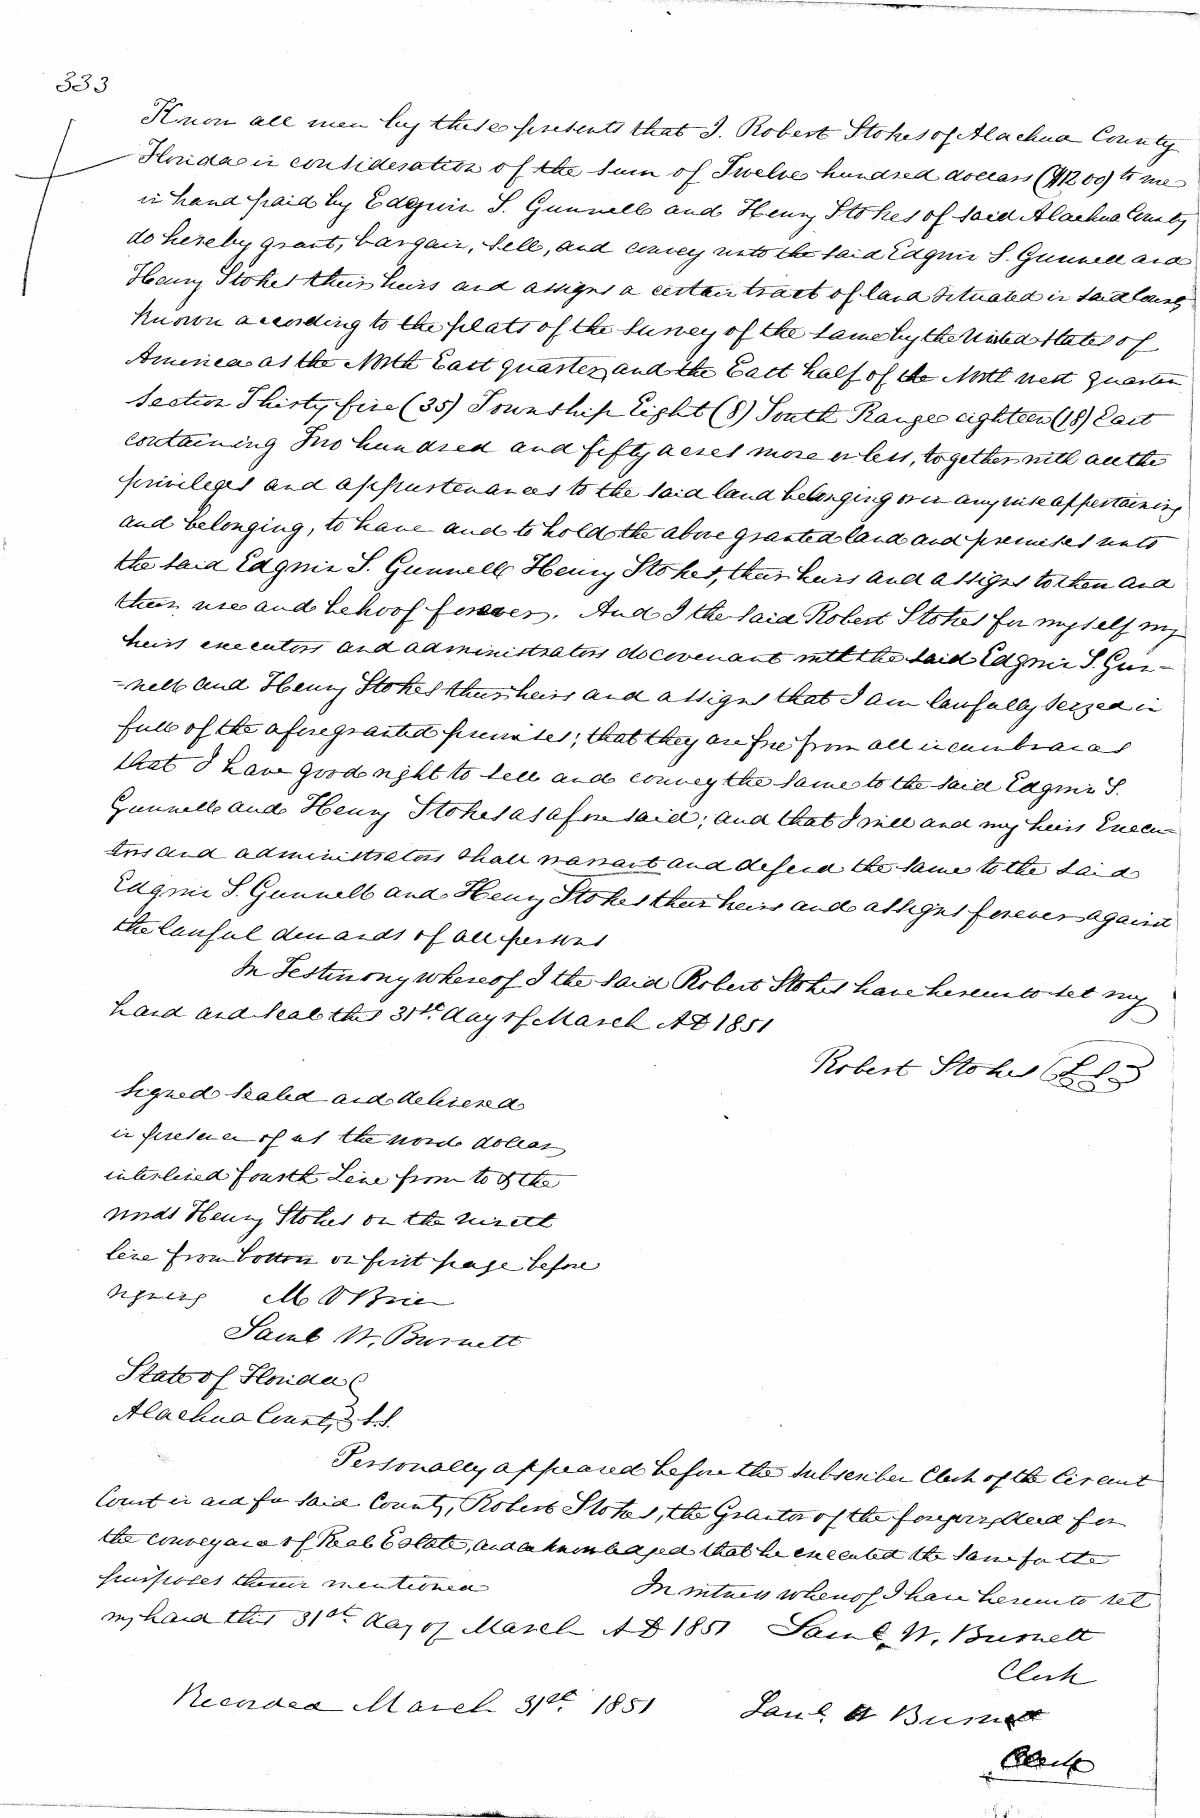 333
Know all men by these presents that I. Robert Stokes of Alachua County
Florida in consideration of the sum of Twelve hundred dollars ($1200) to me
in hand paid by Edgmin S. Gunnell and Henry Stokes of said Alachua County
do hereby grant, bargain, sell, and convey unto the said Edgmin S. Gunnell and
Henry Stokes their heirs and assigns a certain tract of land situated in said County
known according to the plats of the survey of the same by the United States of
America as the North East quarter, and the East half of the North west quarter
Section Thirty five (35) Township Eight (8) South Range eighteen (18) East
containing Two hundred and fifty acres more or less, together with all the
privileges and appurtenances to the said land belonging or in any wise appertaining
and belonging, to have and to hold the above granted land and premises unto
the said Edgmin S. Gunnell Henry Stokes, their heirs and assigns to them and
their use and behoof forever. And I the said Robert Stokes for myself my
heirs executors and administrators do covenant with the said Edgmin S. Gun-
-nell and Henry Stokes their heirs and assigns that I am lawfully seized in
full of the aforegranted premises; that they are free from all incumbrances
that I have good right to sell and convey the same to the said Edgmin S.
Gunnell and Henry Stokes as aforesaid; and that I will and my heirs Execu-
tors and administrators shall warrant and defend the same to the said
Edgmin S. Gunnell and Henry Stokes their heirs and assigns forever against
the lawful demands of all persons
In Testimony whereof I the said Robert Stokes have hereunto set my
hand and seal this 31st. day of March AD 1851
Robert Stokes (L S)
Signed sealed and delivered
in presence of us the word dollars
interlined fourth Line from to & the
words Henry Stokes on the ninth
line from bottom on first page before
signing M OBrien
Saml W. Burnett
State of Florida
Alachua County S.S.
Personally appeared before the subscriber Clerk of the Circuit
Court in and for said County, Robert Stokes, the Grantor of the foregoing deed for
the conveyance of Real Estate, and acknowledged that he executed the same for the
purposes therein mentioned In witness whereof I have hereunto set
my hand this 31st. day of March AD 1851 Saml. W. Burnett
Clerk
Recorded March 31st. 1851 Saml. W Burnett
Clerk